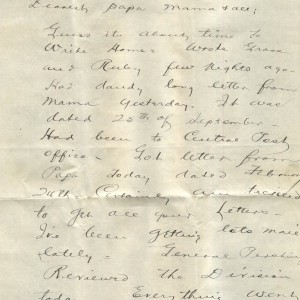 Dearest Papa Mama & all;
Guess its about time to
Write Home. Wrote Grace
and Ruby few Nights ago.
Had dandy long letter from
Mama Yesterday. It was
dated 20th of September.
Had been to Central Post
office. Got letter from
Papa today dated
24th. Certainly am
to get all your Letters.
I've been getting lots mail
lately. General Pershing
Reviewed the Division
today. Everything Went